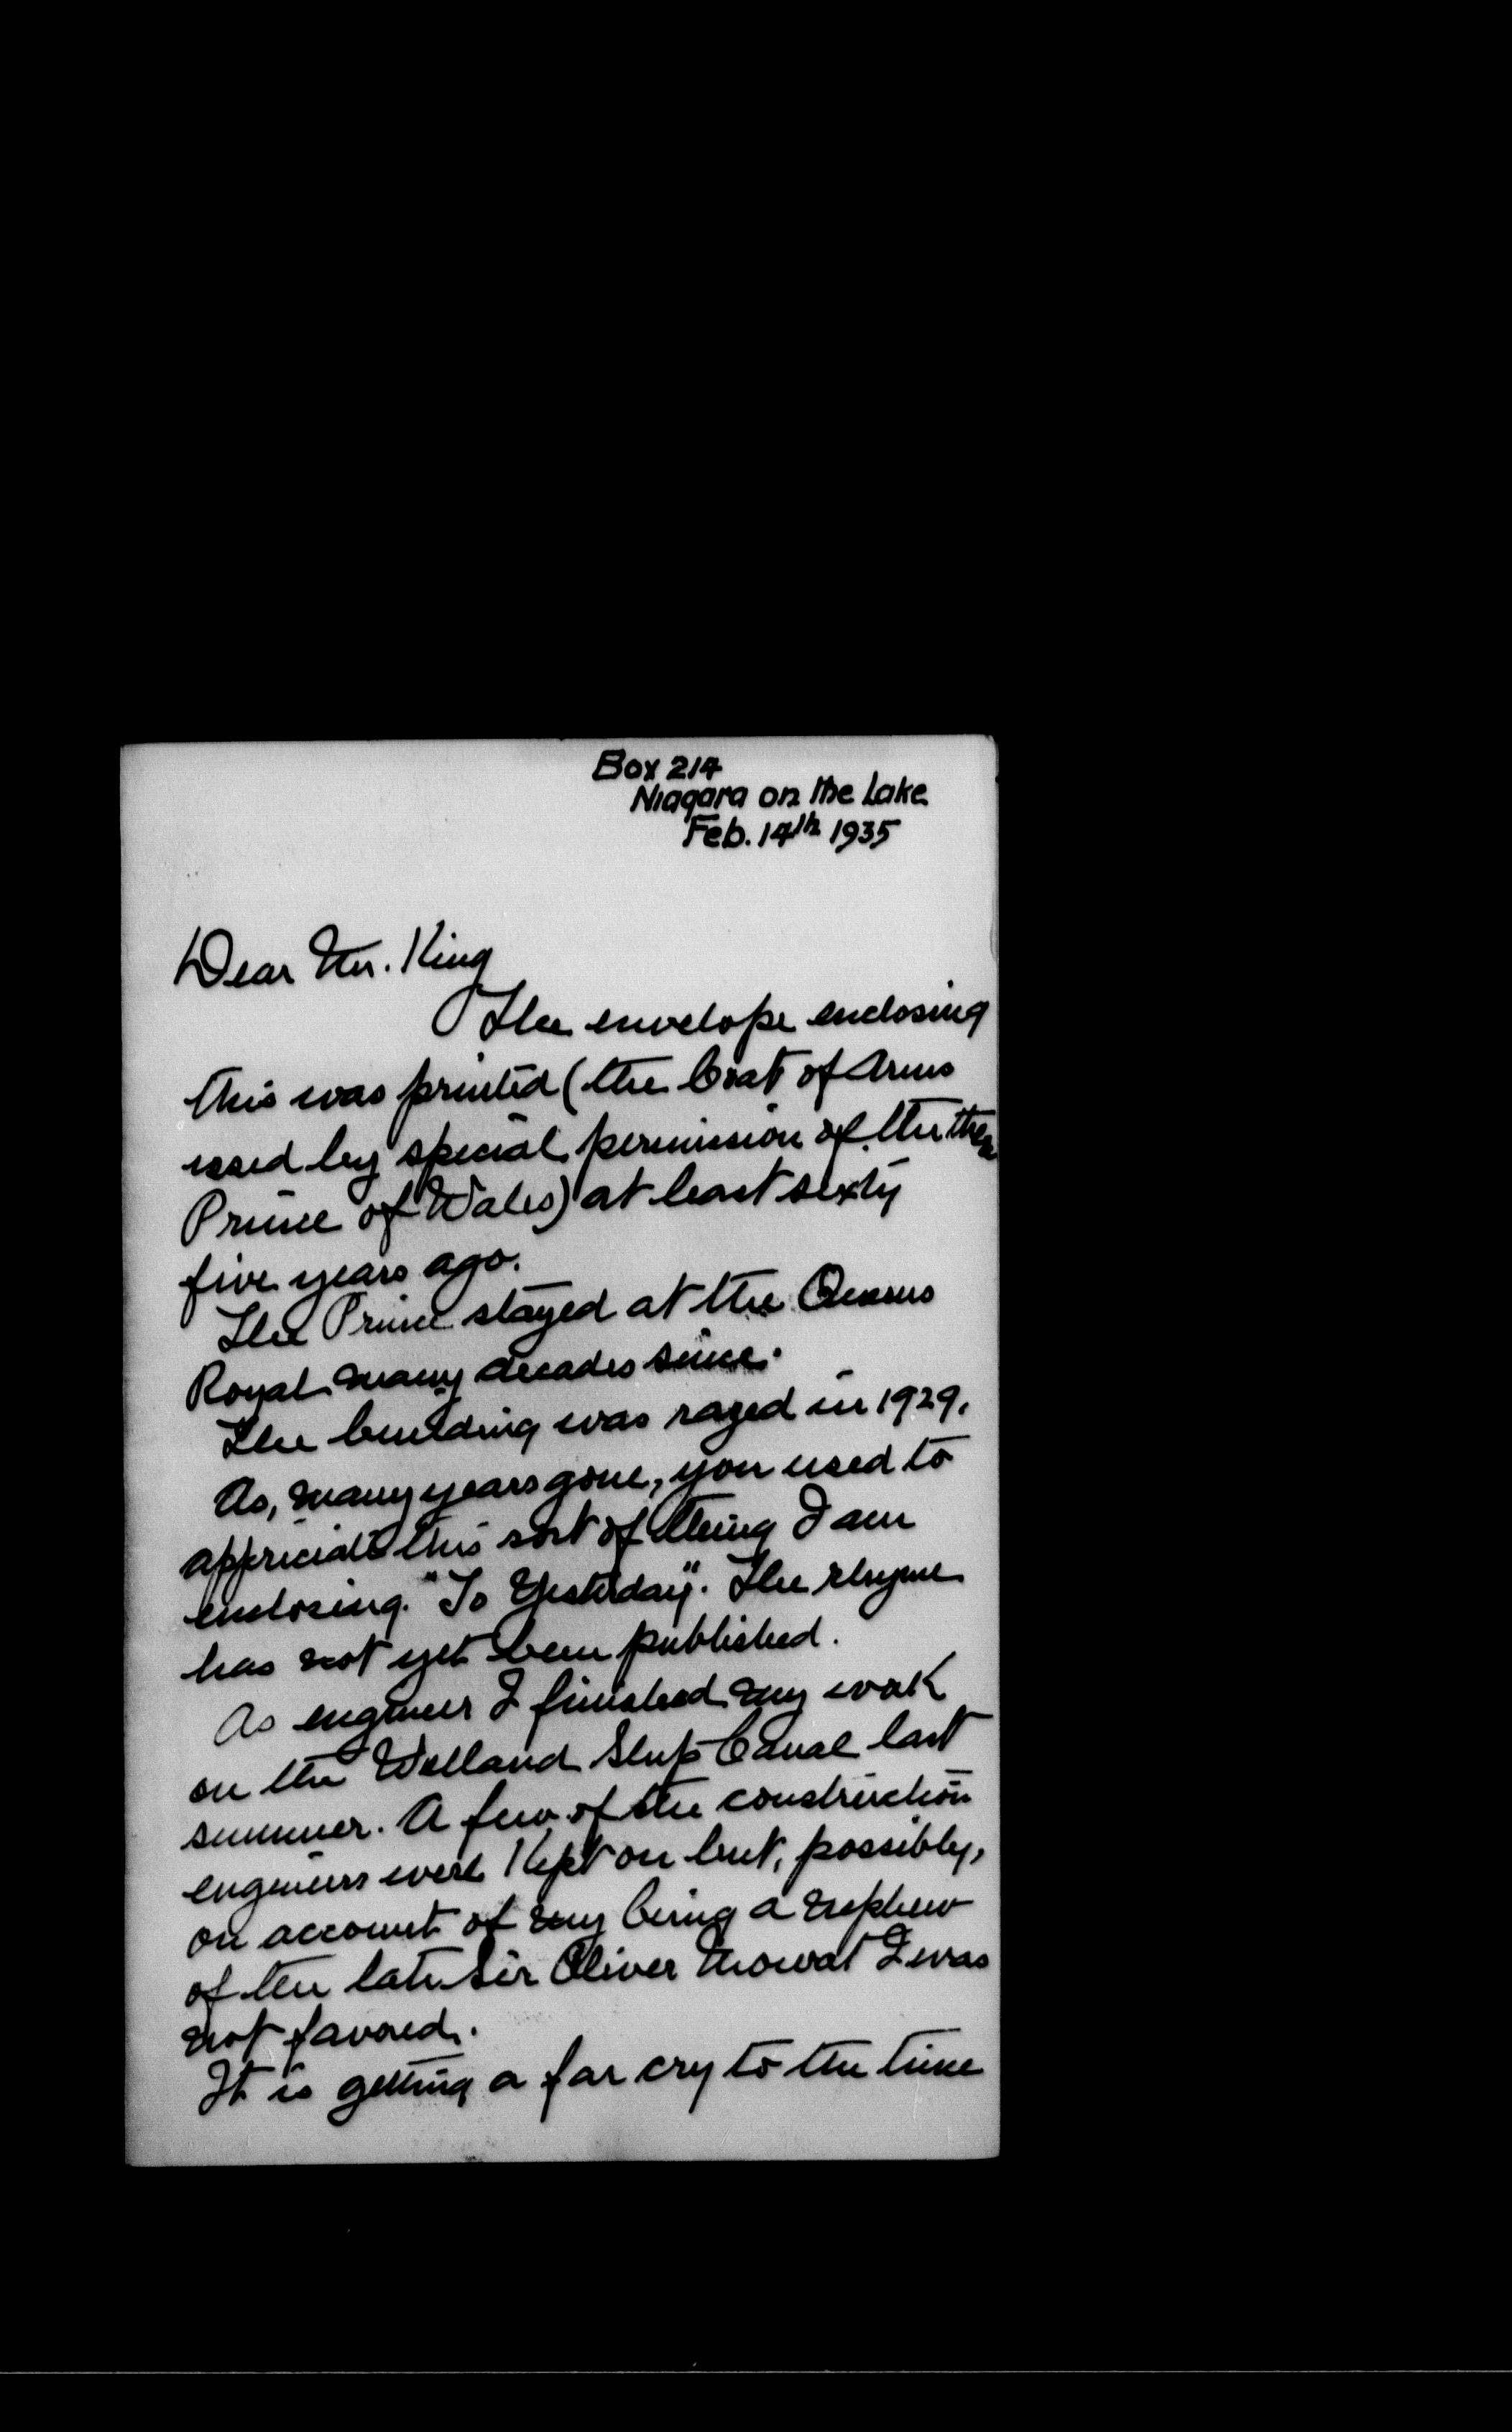 Box 214
Niagara on the Lake
Feb. 14th 1935
Dear Mr. King
The envelope enclosing
this was printed (the Coat of Arms
used by special permission of the then
Prince of Wales) at least sixty
five years ago.
The Prince stayed at the Queens
Royal many decades since.
The building was razed in 1929.
As, many years gone, you used to
appreciate this sort of thing I am
enclosing "To Yesterday". The rhyme
has not yet been published.
As engineer I finished my work
on the Welland Ship Canal last
summer. A few of the construction
engineers were kept on but, possibly,
on account of my being a nephew
of the late Sir Oliver Mowat I was
not favored.
It is getting a far cry to the time